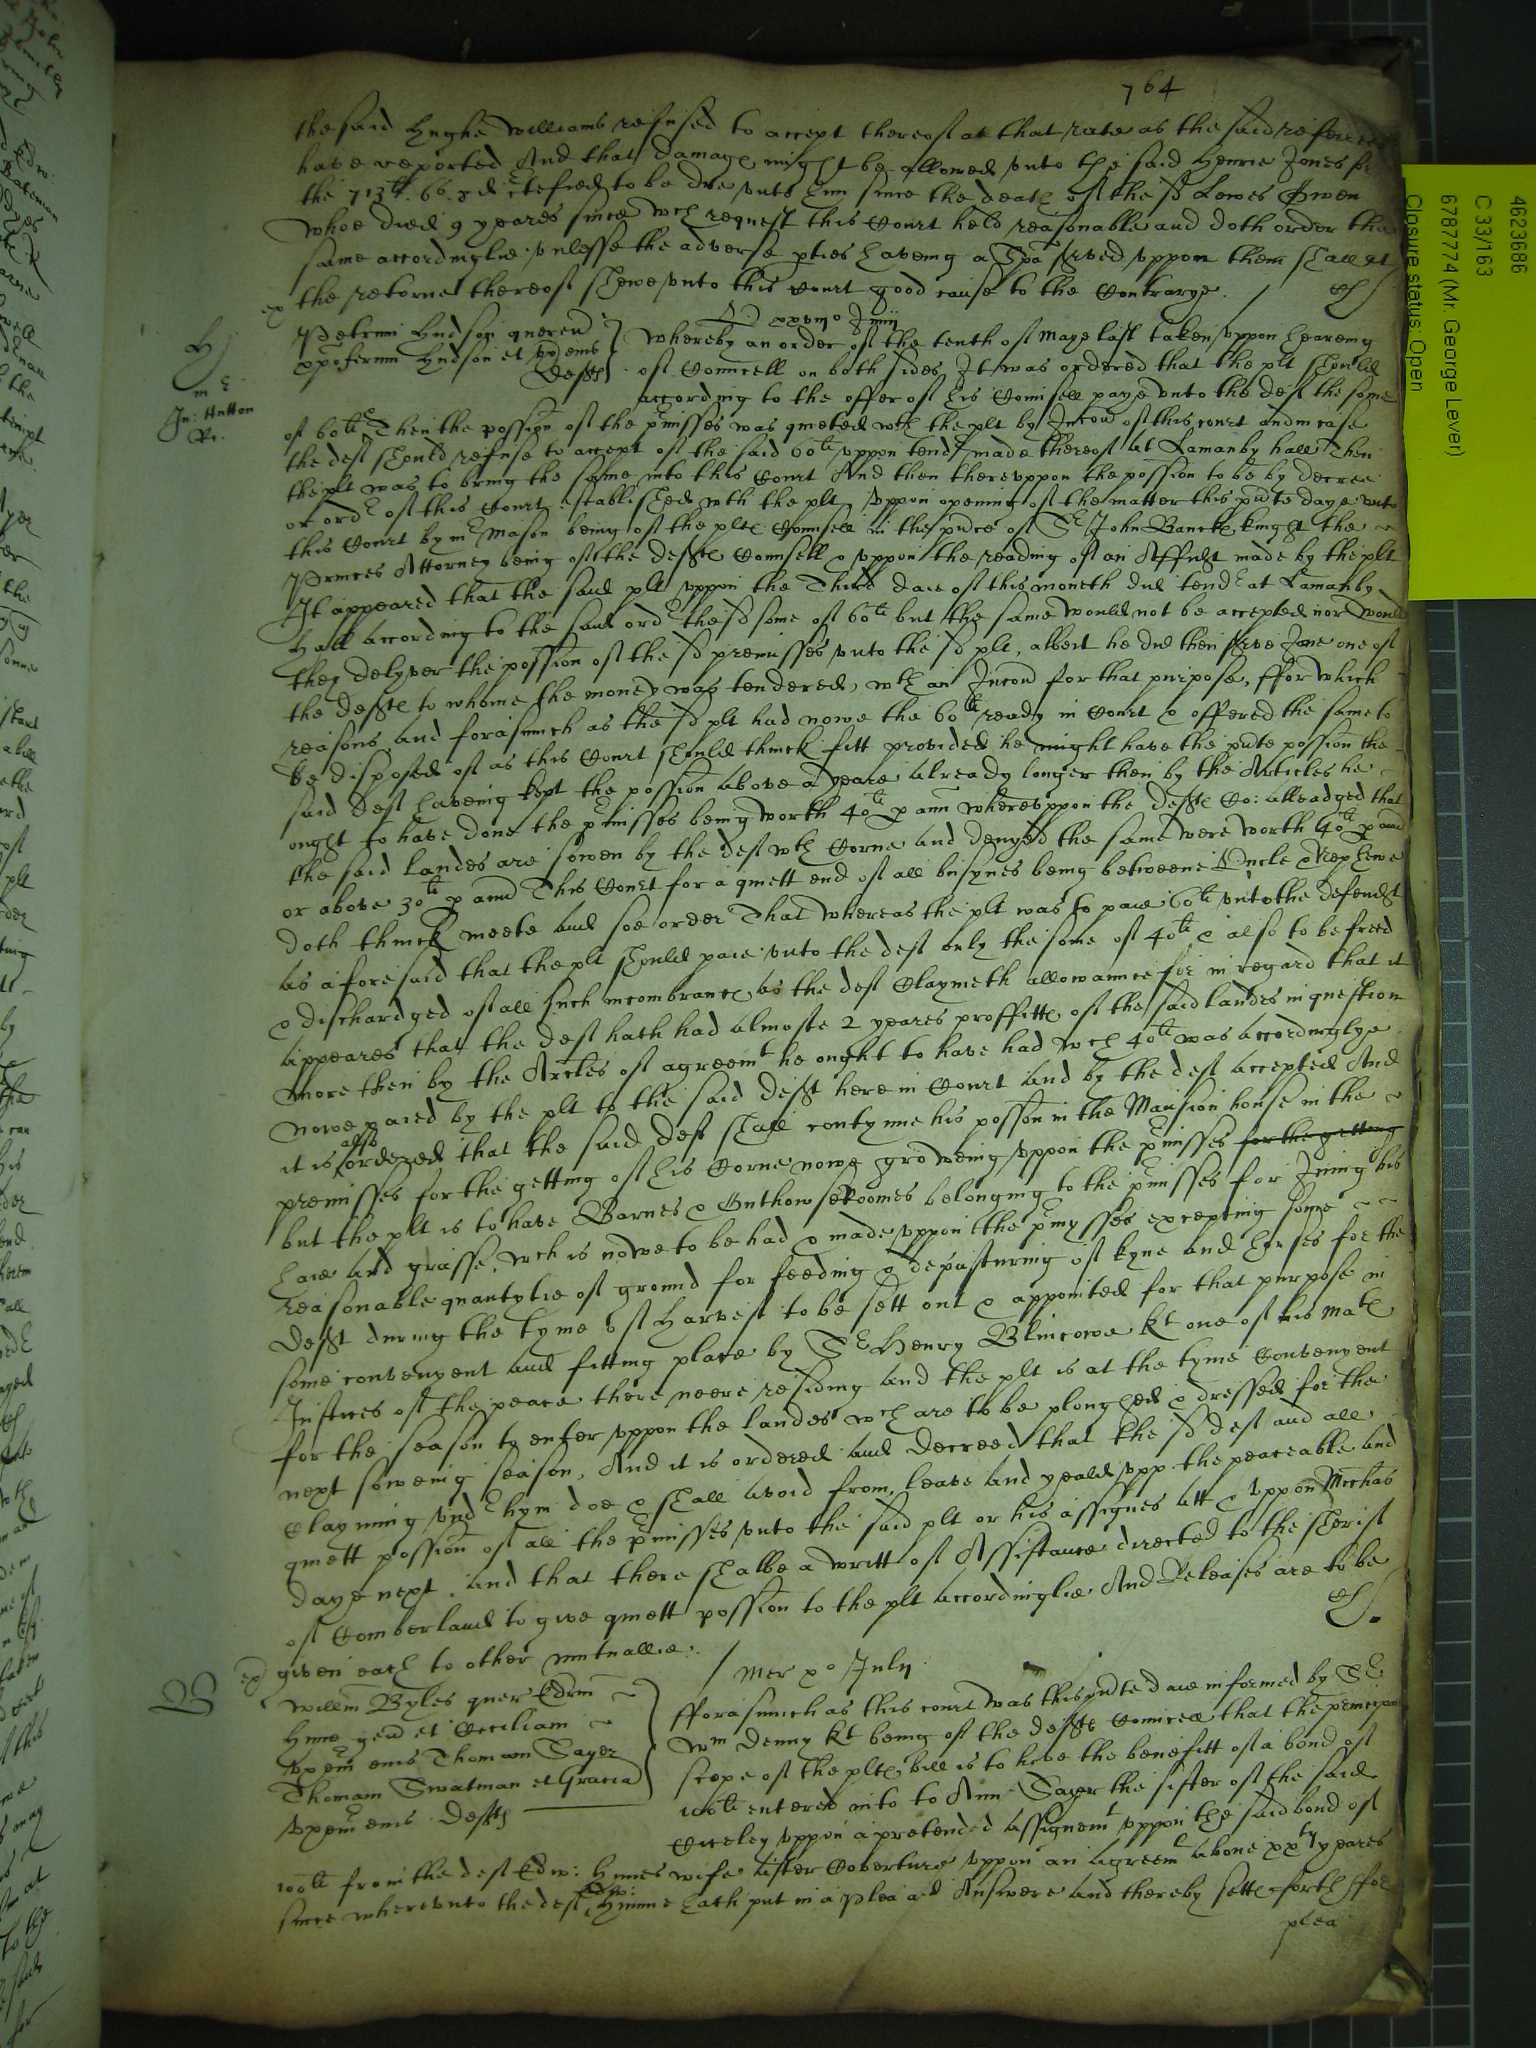 764
the said Hughe Williams refused to accept thereof at that rate as the said referrees
have reported And that damage might be allowed unto the said Henrie Jones for
the 713li 6s 8d certefied to be due unto him since the death of the sd Lewes Owen
whoe died 9 yeares since wch request this Court held reasonable and doth order the
same accordinglie unlesse the adverse pties haveing a Spa served uppon them shall at
the retorne thereof shewe unto this Court good cause to the Contrarye.
Petrum Hudson quer
Xpoferum Hudson et ux eius
Defts
H
mr
Jn: Hutton
Rr.
xxvio Junii
Whereby an order of the tenth of Maye last taken uppon heareing
of Councell on both sides It was ordered that the plt should
according to the offer of his Counsell paye unto the deft the some
of 60li Then the possion of the pmisses was quieted wth the plt by Iniuncon of this court and in case
the deft should refuse to accept of the said 60li uppon tendr made thereof at Lamanby hall Then
the plt was to bring the same into this Court And then thereuppon the possion to be by decree
or ordr of this Court established wth the plt, Uppon opening of the matter this pnte daye unto
this Court by mr Mason being of the plts Counsell in the pnce of Sr John Bancks knight the
Princes Attorney being of the defts Counsell & uppon the reading of an Affidt made by the plt
It appeared that the said plt uppon the Third daie of this moneth did tendr at Lamanby
hall according to the said ordr the sd some of 60li but the same would not be accepted nor would
they delyver the possion of the sd premisses unto the sd plt, albeit he did then serve Jane one of
the defts to whome the money was tendered, wth an Iniuncon for that purpose, ffor which
reasons and forasmuch as the sd plt had nowe the 60li ready in Court & offered the same to
be disposed of as this Court should thinck fitt provided he might have the pnte possion the
said deft haveing kept the possion above a yeare already longer then by the Articles he
ought to have done the pmisses being worth 40li p ann whereuppon the defts Co: alleadged that
the said landes are sowen by the deft wth Corne and denyed the same were worth 40li p ann
or above 30li p ann This Court for a quiett end of all busynes being betweene Uncle & Nephewe
doth thinck meete and soe order That whereas the plt was to paie 60li unto the defendt
as aforesaid that the plt should paie unto the deft only the some of 40li & also to be freed
& dischardged of all such incombrances as the deft Claymeth allowannce for in regard that it
appeares that the deft hath had almoste 2 yeares proffitts of the said landes in question
more then by the Arcles of agreemt he ought to have had wch 40li was accordinglye
nowe paied by the plt to the said deft here in Court and by the deft accepted And
it is also ordered that the said deft shall contynue his possion in the Mansion house in the
premisses for the getting of his Corne nowe groweing uppon the pmisses for the getting
but the plt is to have Barnes & Outhowse roomes belonging to the pmisses for Inning his
haie and grasse, wch is nowe to be had & made uppon the pmysses excepting some
reasonable quantytie of ground for feeding & depasturing of kyne and horses for the
deft during the tyme of Harvest to be sett out & appointed for that purpose in
some convenyent and fitting place by Sr Henry Blincowe kt one of his mats
Justices of the peace there neere residing and the plt is at the tyme Convenyent
for the season to enter uppon the landes wch are to be ploughed & dressed for the
next soweing season, And it is ordered and Decreed that the sd deft and all
Clayming undr hym doe & shall avoid from, leave and yeald upp the peaceable and
quiett possion of all the pmisses unto the said plt or his assignes att & uppon Michas
daye next, and that there shalbe a writt of Assistance directed to the Sherif
of Comberland to give quiett possion to the plt accordinglie And Releases are to be
given each to other mutuallie.
B
Willm Byles quer Edrm
Hynne gen et Ceciliam
uxem eius Thomam Sayer
Thomam Swatman et Graciam
uxem eius Defts
Mer xo July
fforasmuch as this court was this pnte daie informed by Sr
Wm Denny kt being of the defts Councell that the principall
scope of the plts bill is to have the benefitt of a bond of
100li entered into to Ann Sayer the sister of the said
Ciceley uppon a pretended assignemt uppon the said bond of
100li from the deft Edw: Hynnes wife after Coverture uppon an agreemt above xxty yeares
since whereunto the deft Edw: Hynne hath put in a plea and Answere and thereby setts forth ffor
plea
4623686
C 33/163
6787774 (Mr. George Lever)
Closure status: Open